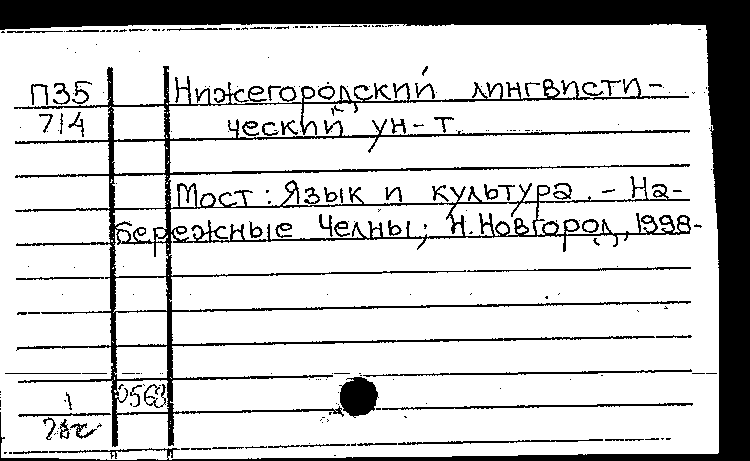 П35 Нижегородский лингвисти-
7/4 ческий ун-т.
Мост: Язык и культура. - На-
бережные Челны; Н.Новгород, 1998-
0563
1